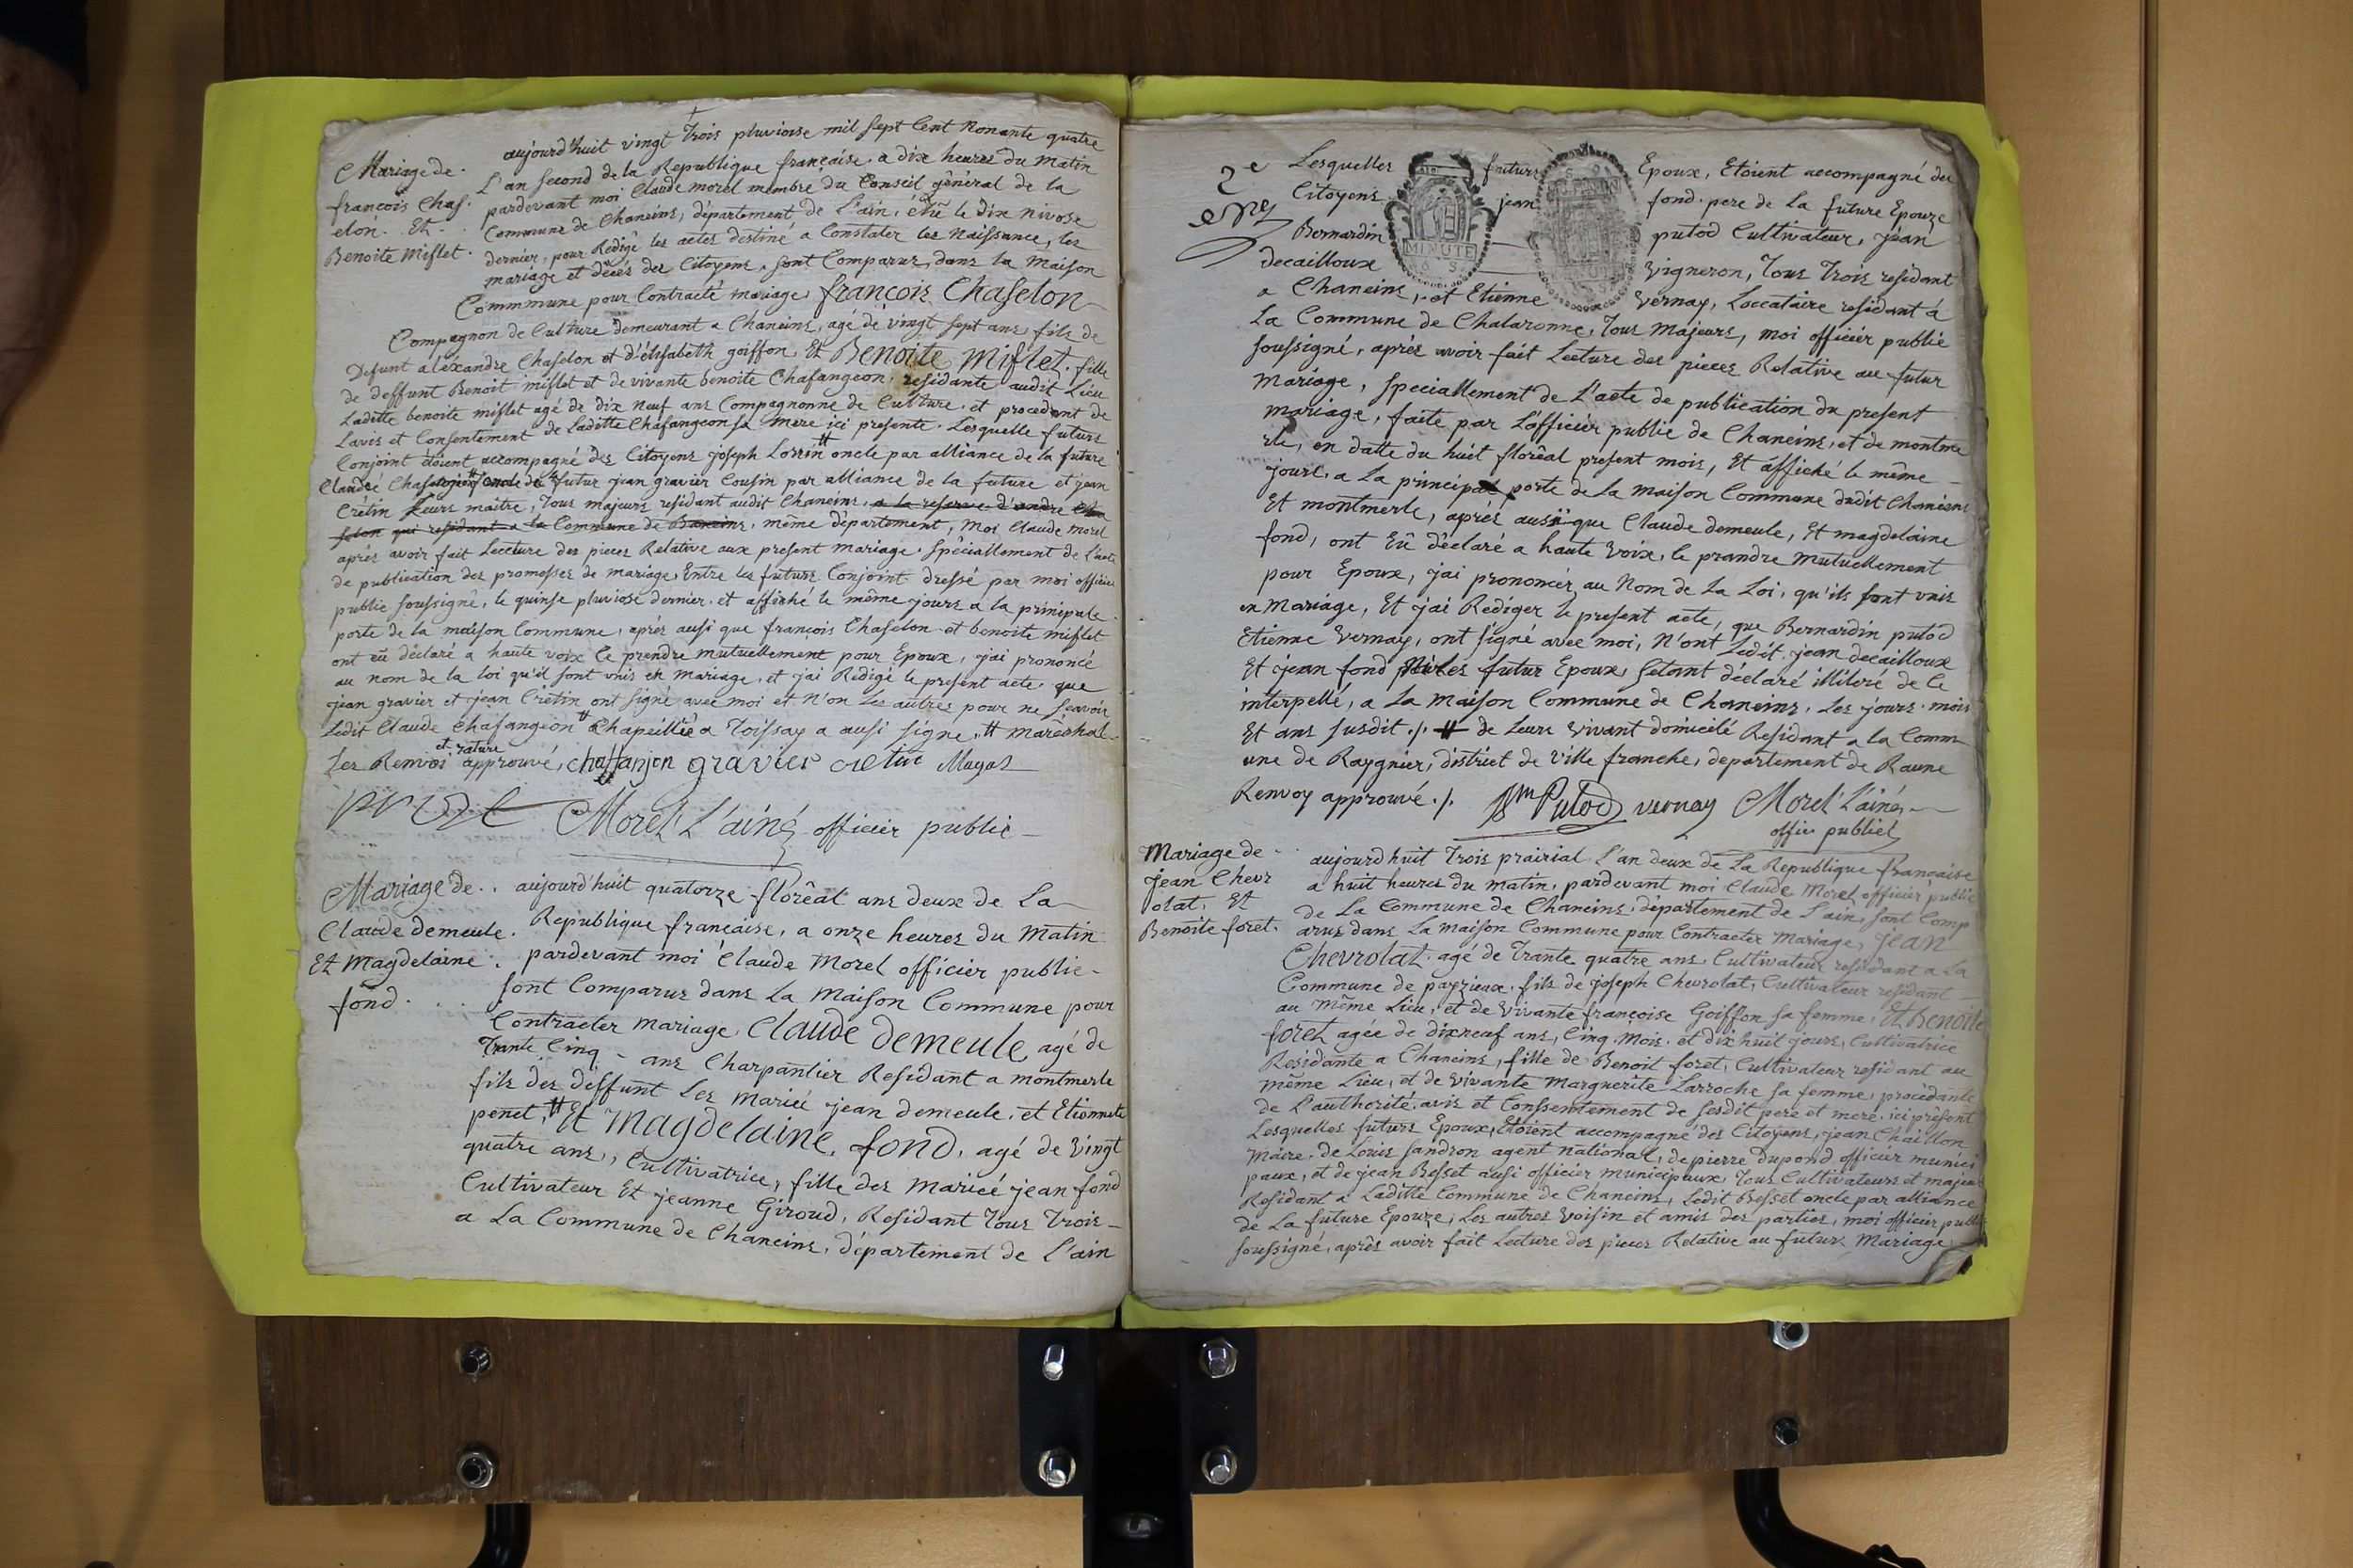 Mariage de.
françois Chas.
elon. Et.
Benoite Miflet.
aujourd'huit vingt Trois pluviose mil sept Cent Nonante quatre
L'an second de la Republique française. a dix heures du matin
pardevant moi Claude morel membre du Conseil général de la
Commune de Chaneins, département de L'ain, élû le dix nivose
dernier, pour Rédigé les actes destiné a Constater les Naissance, les
mariage et décés des Citoyens, sont Comparus, dans la maison
Commmune pour Contracté mariage, françois Chaselon
Compagnon de Culture demeurant a Chaneins, agé de vingt sept ans, fils de
Defunt aléxandre Chaselon et d'élisabeth goiffon, Et Benoite Miflet. fille
de deffunt Benoit miflet et de vivante benoite Chafangeon, residante audit Lieu
Laditte benoite miflet agé de dix neuf ans Compagnonne de Culture. et procedant de
Lavis et Consentement de Laditte Chafangeon sa mere ici presente. Lesquelle futurs
Conjoint étoient accompagné des Citoyens joseph Lorrin oncle par alliance de la future
Claude Chafangeon oncle de futur jean gravier Cousin par alliance de la future et jean
Cretin Leurs maitre, Tous majeurs residant audit Chaneins, a la reserve d'andre Cha
selon qui residant a la Commune de Baneins, même département, Moi Claude morel
après avoir fait Lecture des pieces Relative aux present mariage. spéciallement de L'acte
de publication des promesses de mariage, Entre les futurs Conjoint dressé par moi officier
public soussigné, le quinse pluviose dernier. et affiché le même jours a la prinipale
porte de la maison Commune, après ausi que françois Chaselon et benoite miflet
ont eû déclaré a haute voix Ce prendre mutuellement pour Epoux, j'ai prononcé
au nom de la loi qu'il sont unis en mariage, et j'ai Rédigé le present acte. que
jean gravier et jean Cretin ont signé avec moi et N'on Les autres pour ne sçavoir
Ledit Claude Chafangeon # Chapeillié a Toissay a ausi signe, # maréchal
et rature
Les Renvoi approuvé, chaffanjon gravier cretin
Morel L'ainé officier public
Mariage de..
Claude demeule.
Et Magdelaine.
fond.
aujourd'huit quatorze florêal ans deux de La
Republique francaise, a onze heures du Matin
pardevant moi Claude Morel officier public
sont Comparus dans La Maison Commune pour
Contracter Mariage, Claude Demeule agé de
Trante Cinq - ans Charpantier Residant a montmerle
fils des deffunt Les Marieé jean demeule. et Etiennete
penet, # Et Magdelaine, fond, agé de Vingt
quatre ans, Cultivatrice, fille des Marieé jean fond
Cultivateur Et jeanne Giroud, Residant Tous Trois
a La Commune de Chaneins, département de L'ain
2e
Lesquelles futurs Epoux, Etoient accompagné des
Citoyens, jean fond. pere de La future Epouze
Bernardin putod Cultivateur, jean
decailloux vigneron, Tous Trois residant
a Chaneins, et Etienne Vernay, Loccataire residant à
La Commune de Chalaronne, Tous Majeurs, moi officiér public
soussigné, aprés avoir fait Lecture des pieces Relative au futur
Mariage, speciallement de L'acte de publication du present
mariage, faite par L'officiér public de Chaneins, et de montme
rle, en datte du huit florêal present mois, Et affiché le même
jours, a La principal porte de La Maison Commune dudit Chaneins
Et montmerle, aprés ausi que Claude demeule, Et magdelaine
fond, ont Eû déclaré a haute Voix, le prandre Mutuellement
pour Epoux, j'ai prononcér au Nom de La Loi, qu'ils sont unis
en Mariage, Et j'ai Rediger le present acte, que Bernardin putod
Etienne Vernay, ont signé avec moi, N'ont Ledit jean decailloux
Et jean fond Ni Les futur Epoux, setant déclaré illiteré de Ce
interpellé, a La Maison Commune de Chaneins, Les jours. mois
Et ans susdit ./. # de Leurs vivant domicilé Residant a la Comm
une de Raygnier, district de ville franche, departement de Raune
Renvoy approuvé ./. Putod vernay Morel L'ainé
offic. public
Mariage de
Jean Chevr
olat, Et
Benoite foret.
aujourd'huit Trois prairial L'an deux de La Republique française
a huit heures du matin, pardevant moi Claude Morel officier public
de La Commune de Chaneins, département de L'ain, sont Comp
arus dans La Maison Commune pour Contracter Mariage, Jean
Chevrolat, agé de Trante quatre ans, Cultivateur residant a La
Commune de payzieux, fils de joseph Chevrolat, Cultivateur residant
au même Lieu, et de Vivante françoise Goiffon sa femme, Et Benoite
foret agée de dixneuf ans, Cinq, Mois. et dix huit jours, Cultivatrice
Residante a Chaneins, fille de Benoit foret, Cultivateur residant au
même Lieu, et de vivante Marguerite Larroche sa femme, procédante
de L'authorité, avis et Conssentement de sesdit pere et mere, ici présent
Lesquelles futurs Epoux, Etoient accompagné des Citoyens, jean Chaillon
Maire, de Louis sandron agent national, de pierre Dupond officier munici
paux, et de jean Besset ausi officier municipaux, Tous Cultivateurs et majeur
Residant a Laditte Commune de Chaneins, Ledit Besset oncle par alliance
de La future Epouze, Les autres voisin et amis des parties, moi officier public
soussigné, aprés avoir fait Lecture des pieces Relative au futur Mariage